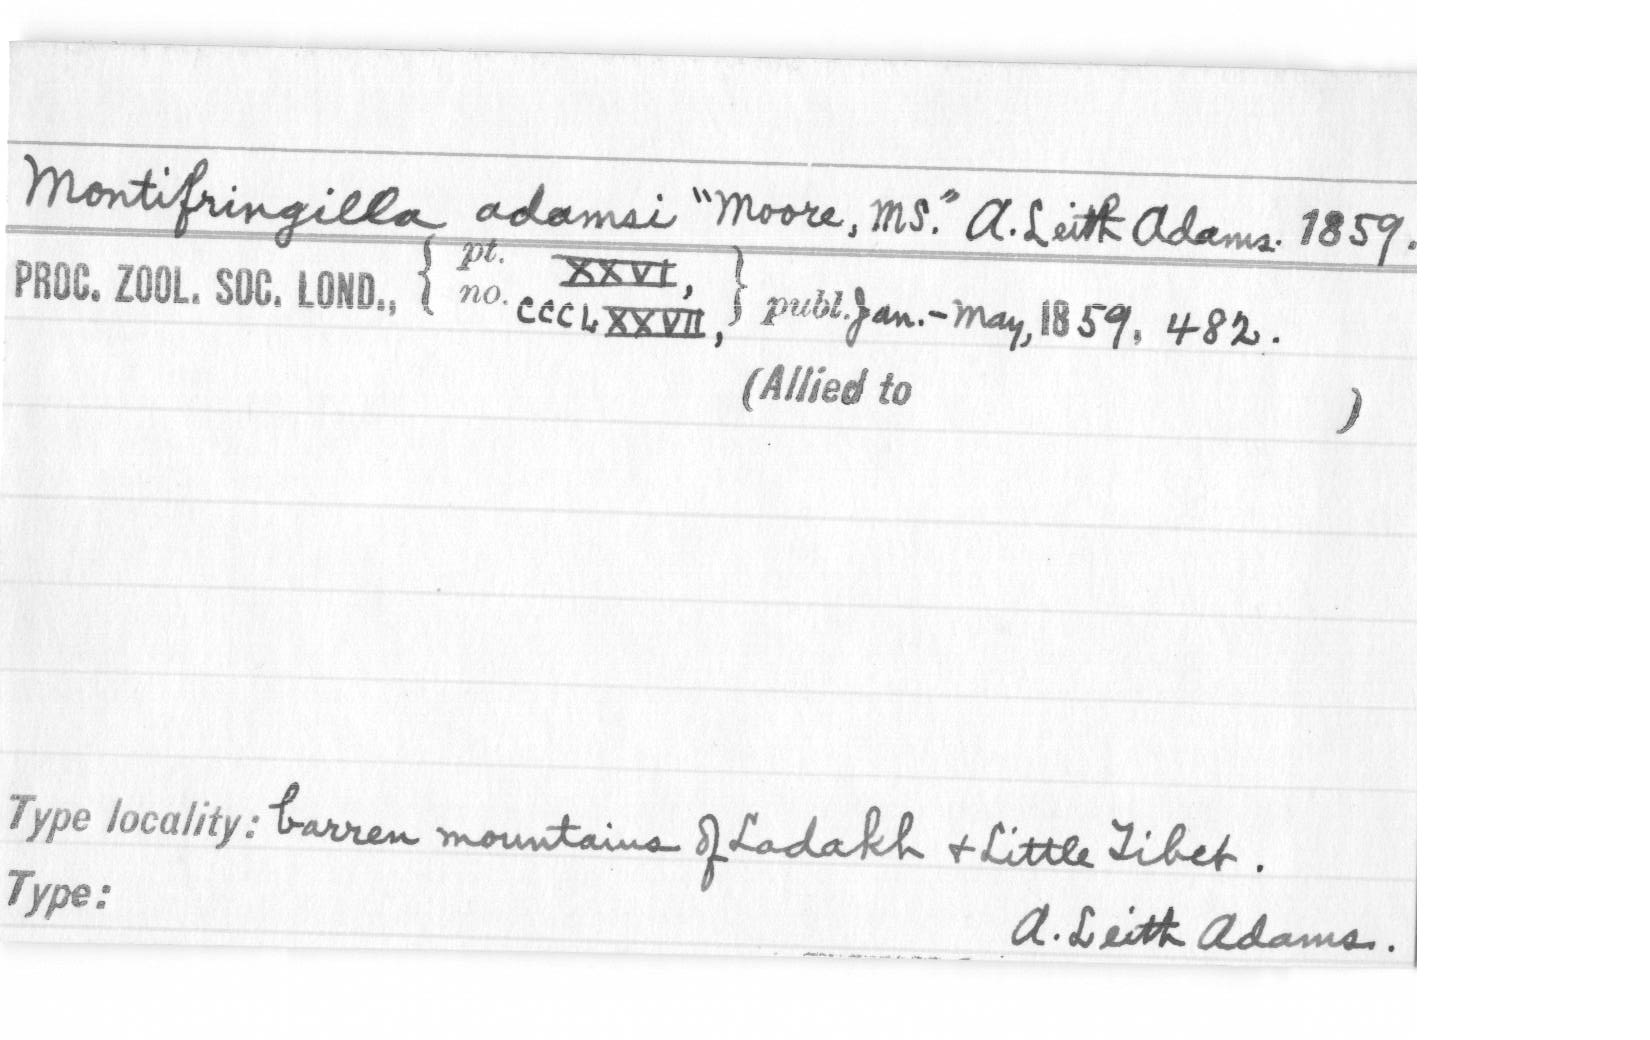 Montifringilla adamsi "Moore, MS." A. Leith Adams. 1859.
PROC. ZOOL. SOC. LOND., { pt. XXVI, no. CCCLXXVII, } publ. Jan.-May, 1859, 482.
(Allied to )
Type locality: barren mountains of Ladakh + Little Tibet.
Type:
A. Leith Adams.